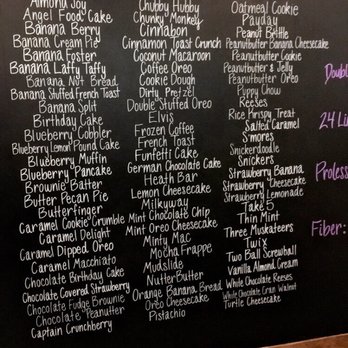 Almond Joy
Angel Food Cake
Banana Berry
Banana Cream Pie
Banana Foster
Banana Laffy Taffy
Banana Nut Bread
Banana Stuffed French Toast
Banana Split
Birthday Cake
Blueberry Cobbler
Blueberry Lemon Pound Cake
Blueberry Muffin
Blueberry Pancake
Brownie Batter
Butter Pecan Pie
Butterfinger
Caramel Cookie Crumble
Caramel Delight
Caramel Dipped Oreo
Caramel Macchiato
Chocolate Birthday Cake
Chocolate Covered Strawberry
Chocolate Fudge Brownie
Chocolate Peanutter
Captain Crunchberry
Chubby Hubby
Chunky Monkey
Cinnabon
Cinnamon Toast Crunch
Coconut Macaroon
Coffee Oreo
Cookie Dough
Dirty Pretzel
Double Stuffed Oreo
Elvis
Frozen Coffee
French Toast
Funfetti Cake
German Chocolate Cake
Heath Bar
Lemon Cheesecake
Milkyway
Mint Chocolate Chip
Mint Oreo Cheesecake
Minty Mac
Mocha Frappe
Mudslide
Nutter Butter
Orange Banana Bread
Oreo Cheesecake
Pistachio
Oatmeal Cookie
Payday
Peanut Brittle
Peanutbutter Banana Cheesecake
Peanutbutter Cookie
Peanutbutter & Jelly
Peanutbutter Oreo
Puppy Chow
Reeses
Rice Krispy Treat
Salted Caramel
S'mores
Snickerdoodle
Snickers
Strawberry Banana
Strawberry Cheesecake
Strawberry Lemonade
Take 5
Thin Mint
Three Musketeers
Twix
Two Ball Screwball
Vanilla Almond Cream
White Chocolate Reeses
White Chocolate Cran Walnut
Turtle Cheesecake
Doubl
24 Li
Profess
Fiber: